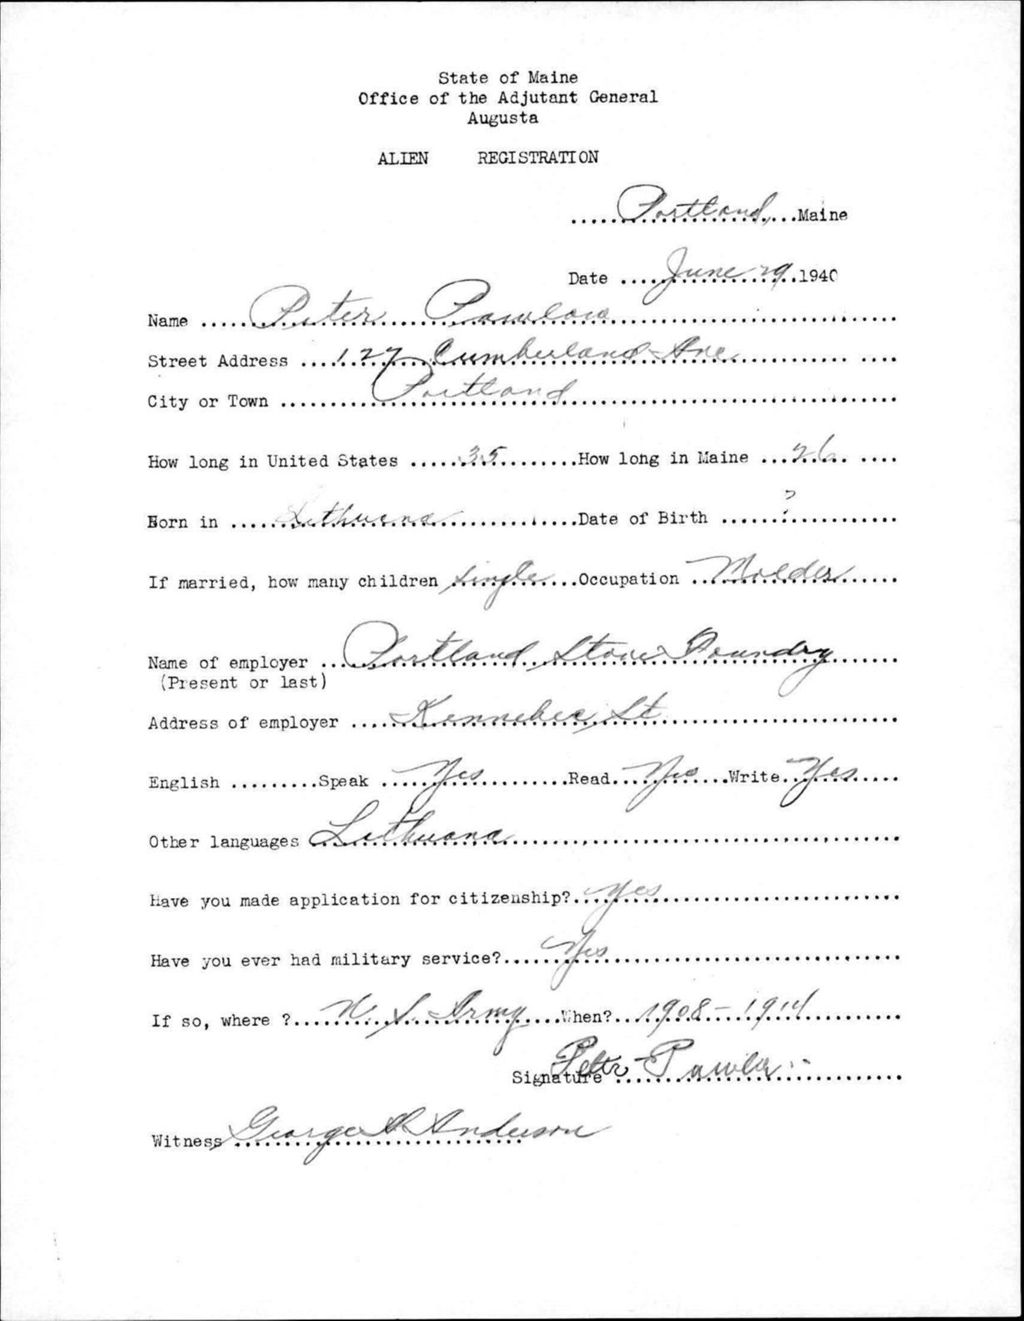 State of Maine
Office of the Adjutant General
Augusta
ALIEN REGISTRATION
Portland, Maine
Date June 29 1940
Name Peter
Street Address 127 Cumberland Ave
City or Town Portland
How long in United States 35 How long in Maine 26
Born in Lithuana Date of Birth ?
If married, how many children single Occupation Molder
Name of employer Portland Stove Foundry
(Present or last)
Address of employer Kennebec St.
English Speak Yes Read Yes Write Yes
Other languages Lithuana
Have you made application for citizenship? Yes
Have you ever had military service? Yes
If so, where ? U. S. Army When? 1908-1914
Signature
Witness George A Anderson